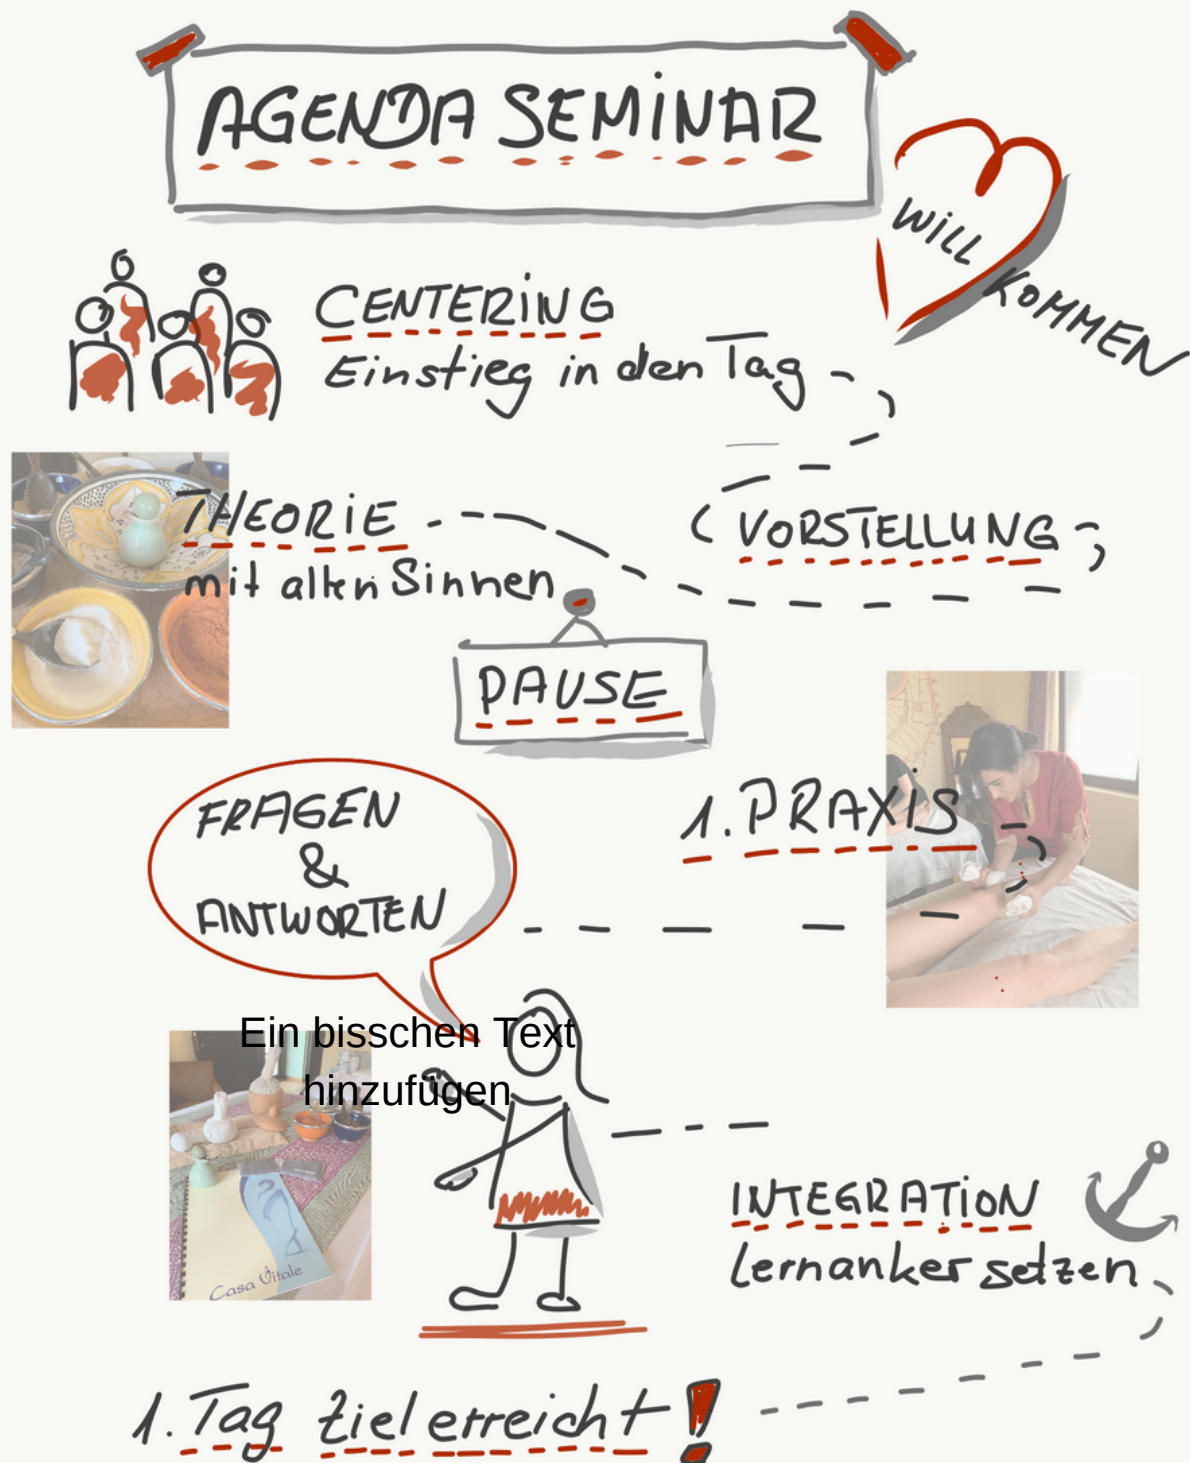 AGENDA SEMINAR
WILL
KOMMEN
CENTERING
Einstieg in den Tag
VORSTELLUNG
THEORIE
mit allen Sinnen
PAUSE
1. PRAXIS
FRAGEN
&
ANTWORTEN
Ein bisschen Text
hinzufügen
Casa Vitale
INTEGRATION
Lernanker setzen
1. Tag Ziel erreicht!